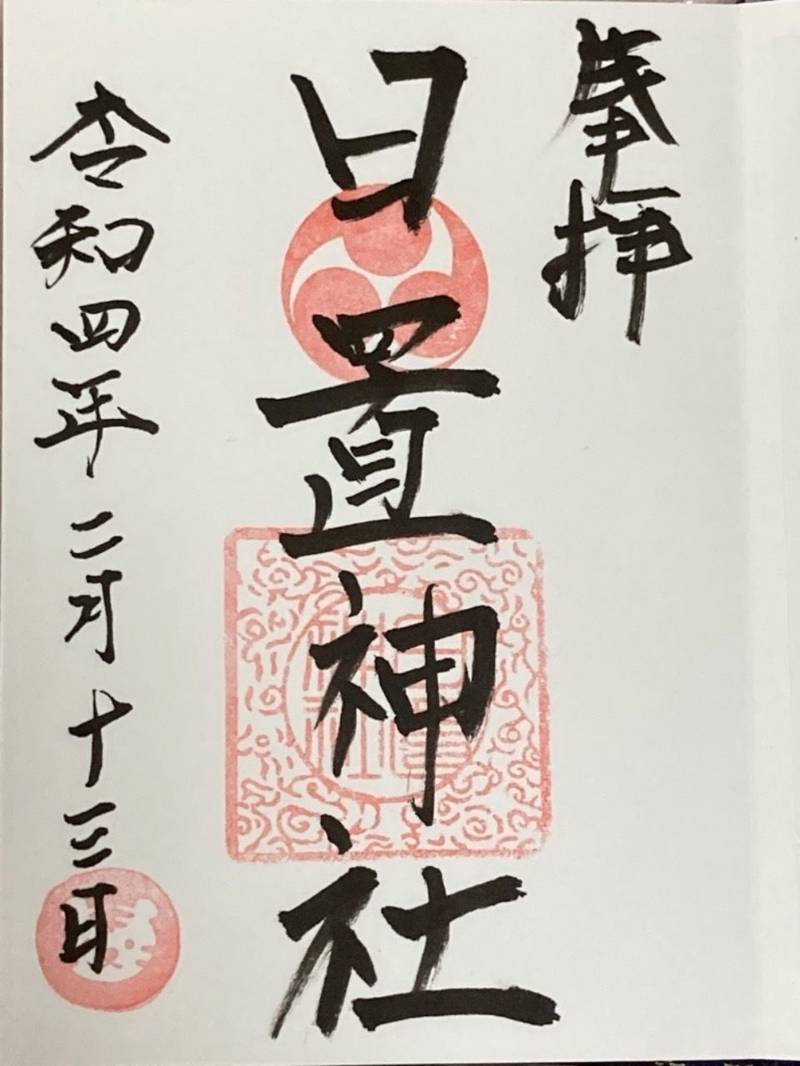 奉拝
日置神社
令和四年二月十三日